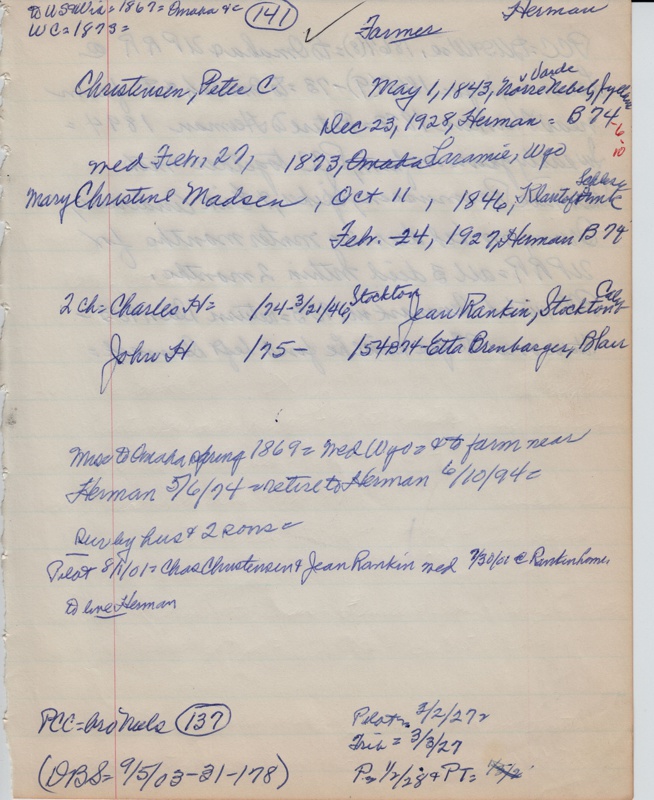 to US = Wis = 1867 = Omaha & c (141) Herman
WC = 1873 = Farmer
Christensen, Peter C May 1, 1843, Nörre Nebel, Varde
Dec 23, 1928, Herman = B 74-6
10
wed Feb. 27, 1873, Omaha Laramie, Wyo
Mary Christine Madsen, Oct 11, 1846,
Feb. - 24, 1927, Herman B 74
2 ch = Charles H = /74 - 3/21/46, Stockton Jean Rankin, Stockton Calif
John H /75 - /154 B74 - Etta Brenbarger, Blair
Mcd to Omaha spring 1869 = wed Wyo = & to farm near
Herman 5/6/74 = retire to Herman 6/10/94 =
Sur by hus & 2 sons =
Pilot 8/1/01 = Chas Christensen & Jean Rankin wed 7/30/01 @ Rankin home,
to live Herman
PCC = bro Neels (137) Pilot = 3/2/27
Trib = 3/3/27
(DBS = 9/5/03-31-178) P = 1/2/28 & PT =